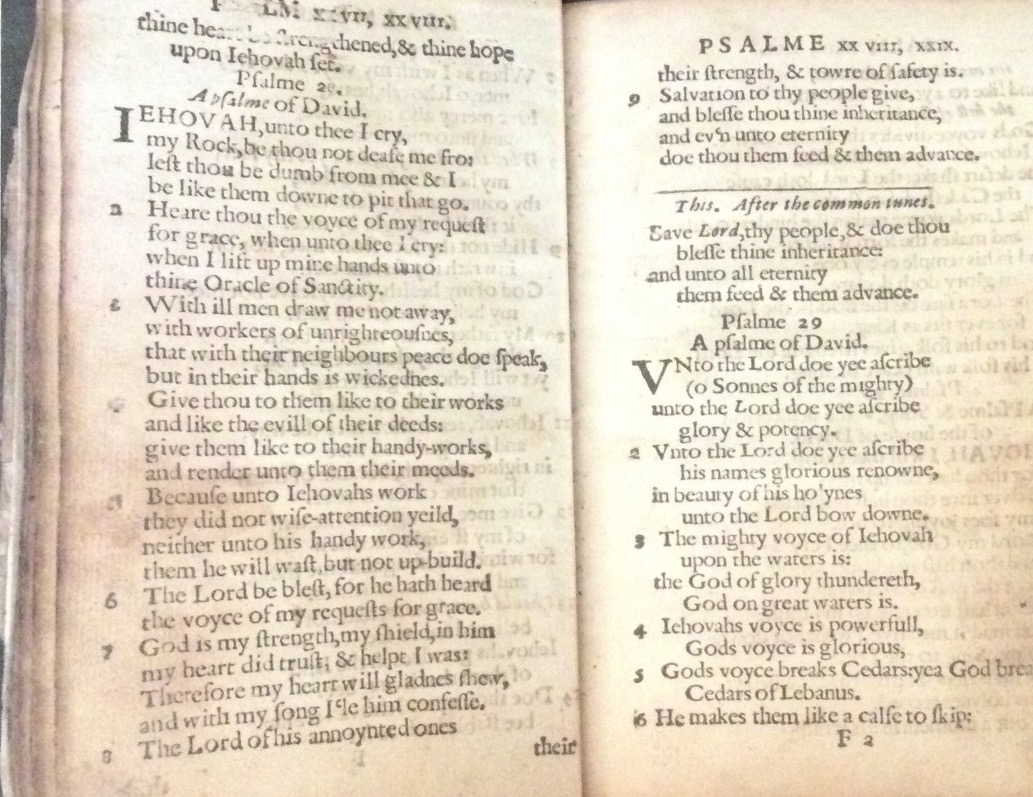 PSALM xxvii, xxviii.
thine heart be strengthened,& thine hope
upon Iehovah ſet.
Pſalme 28.
A pſalme of David.
IEHOVAH,unto thee I cry,
my Rock,be thou not deafe me fro:
leſt thou be dumb from mee & I
be like them downe to pit that go.
2 Heare thou the voyce of my requeſt
for grace, when unto thee I cry:
when I lift up mine hands unto
thine Oracle of Sanctity.
3 With ill men draw me not away,
with workers of unrighteouſnes,
that with their neighbours peace doe ſpeak,
but in their hands is wickednes.
4 Give thou to them like to their works
and like the evill of their deeds:
give them like to their handy-works,
and render unto them their meeds.
5 Becauſe unto Iehovahs work
they did not wiſe-attention yeild,
neither unto his handy work,
them he will waſt,but not up-build.
6 The Lord be bleſt, for he hath heard
the voyce of my requeſts for grace.
7 God is my ſtrength,my ſhield,in him
my heart did truſt; & helpt I was:
Therefore my heart will gladnes ſhew,
and with my ſong I'le him confeſſe.
8 The Lord of his annoynted ones
their
PSALME xxviii, xxix.
their ſtrength, & towre of ſafety is.
9 Salvation to thy people give,
and bleſſe thou thine inheritance,
and ev'n unto eternity
doe thou them feed & them advance.
This. After the common tunes.
Save Lord,thy people,& doe thou
bleſſe thine inheritance:
and unto all eternity
them feed & them advance.
Pſalme 29
A pſalme of David.
VNto the Lord doe yee aſcribe
(o Sonnes of the mighty)
unto the Lord doe yee aſcribe
glory & potency.
2 Vnto the Lord doe yee aſcribe
his names glorious renowne,
in beauty of his ho'ynes
unto the Lord bow downe.
3 The mighty voyce of Iehovah
upon the waters is:
the God of glory thundereth,
God on great waters is.
4 Iehovahs voyce is powerfull,
Gods voyce is glorious,
5 Gods voyce breaks Cedars:yea God brea
Cedars of Lebanus.
6 He makes them like a calfe to ſkip:
F 2